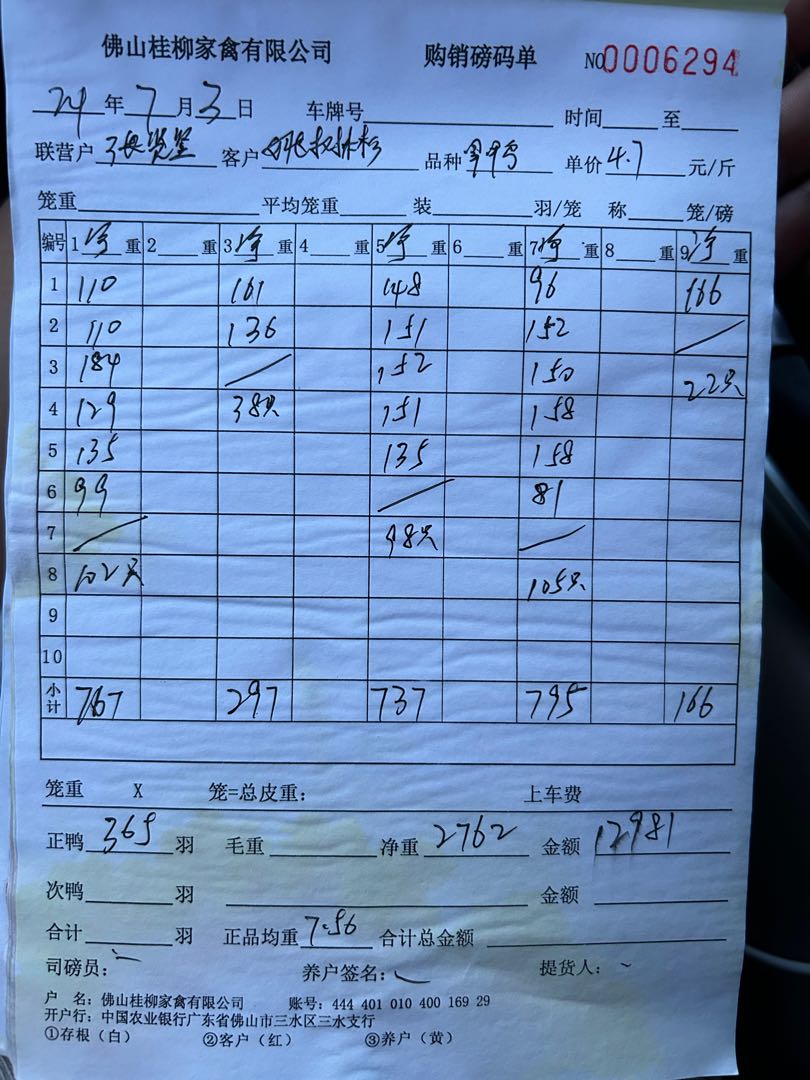 佛山桂柳家禽有限公司 购销磅码单 NO0006294
24年7月3日 车牌号 时间 至
联营户 张 客户 品种 单价4.7元/斤
笼重 平均笼重 装 羽/笼 称 笼/磅
编号 1净重 2 重 3净重 4 重 5净重 6 重 7净重 8 重 9净重
1 110 161 148 96 166
2 110 136 151 152 /
3 184 / 152 150 22只
4 129 38只 151 158
5 135 135 158
6 99 / 81
7 / 98只 /
8 102只 105只
9
10
小计 767 297 737 795 166
笼重 X 笼=总皮重: 上车费
正鸭365羽 毛重 净重2762 金额12981
次鸭 羽 金额
合计 羽 正品均重7.56 合计总金额
司磅员: 养户签名: 提货人:
户 名: 佛山桂柳家禽有限公司 账号: 444 401 010 400 169 29
开户行: 中国农业银行广东省佛山市三水区三水支行
①存根(白) ②客户(红) ③养户(黄)